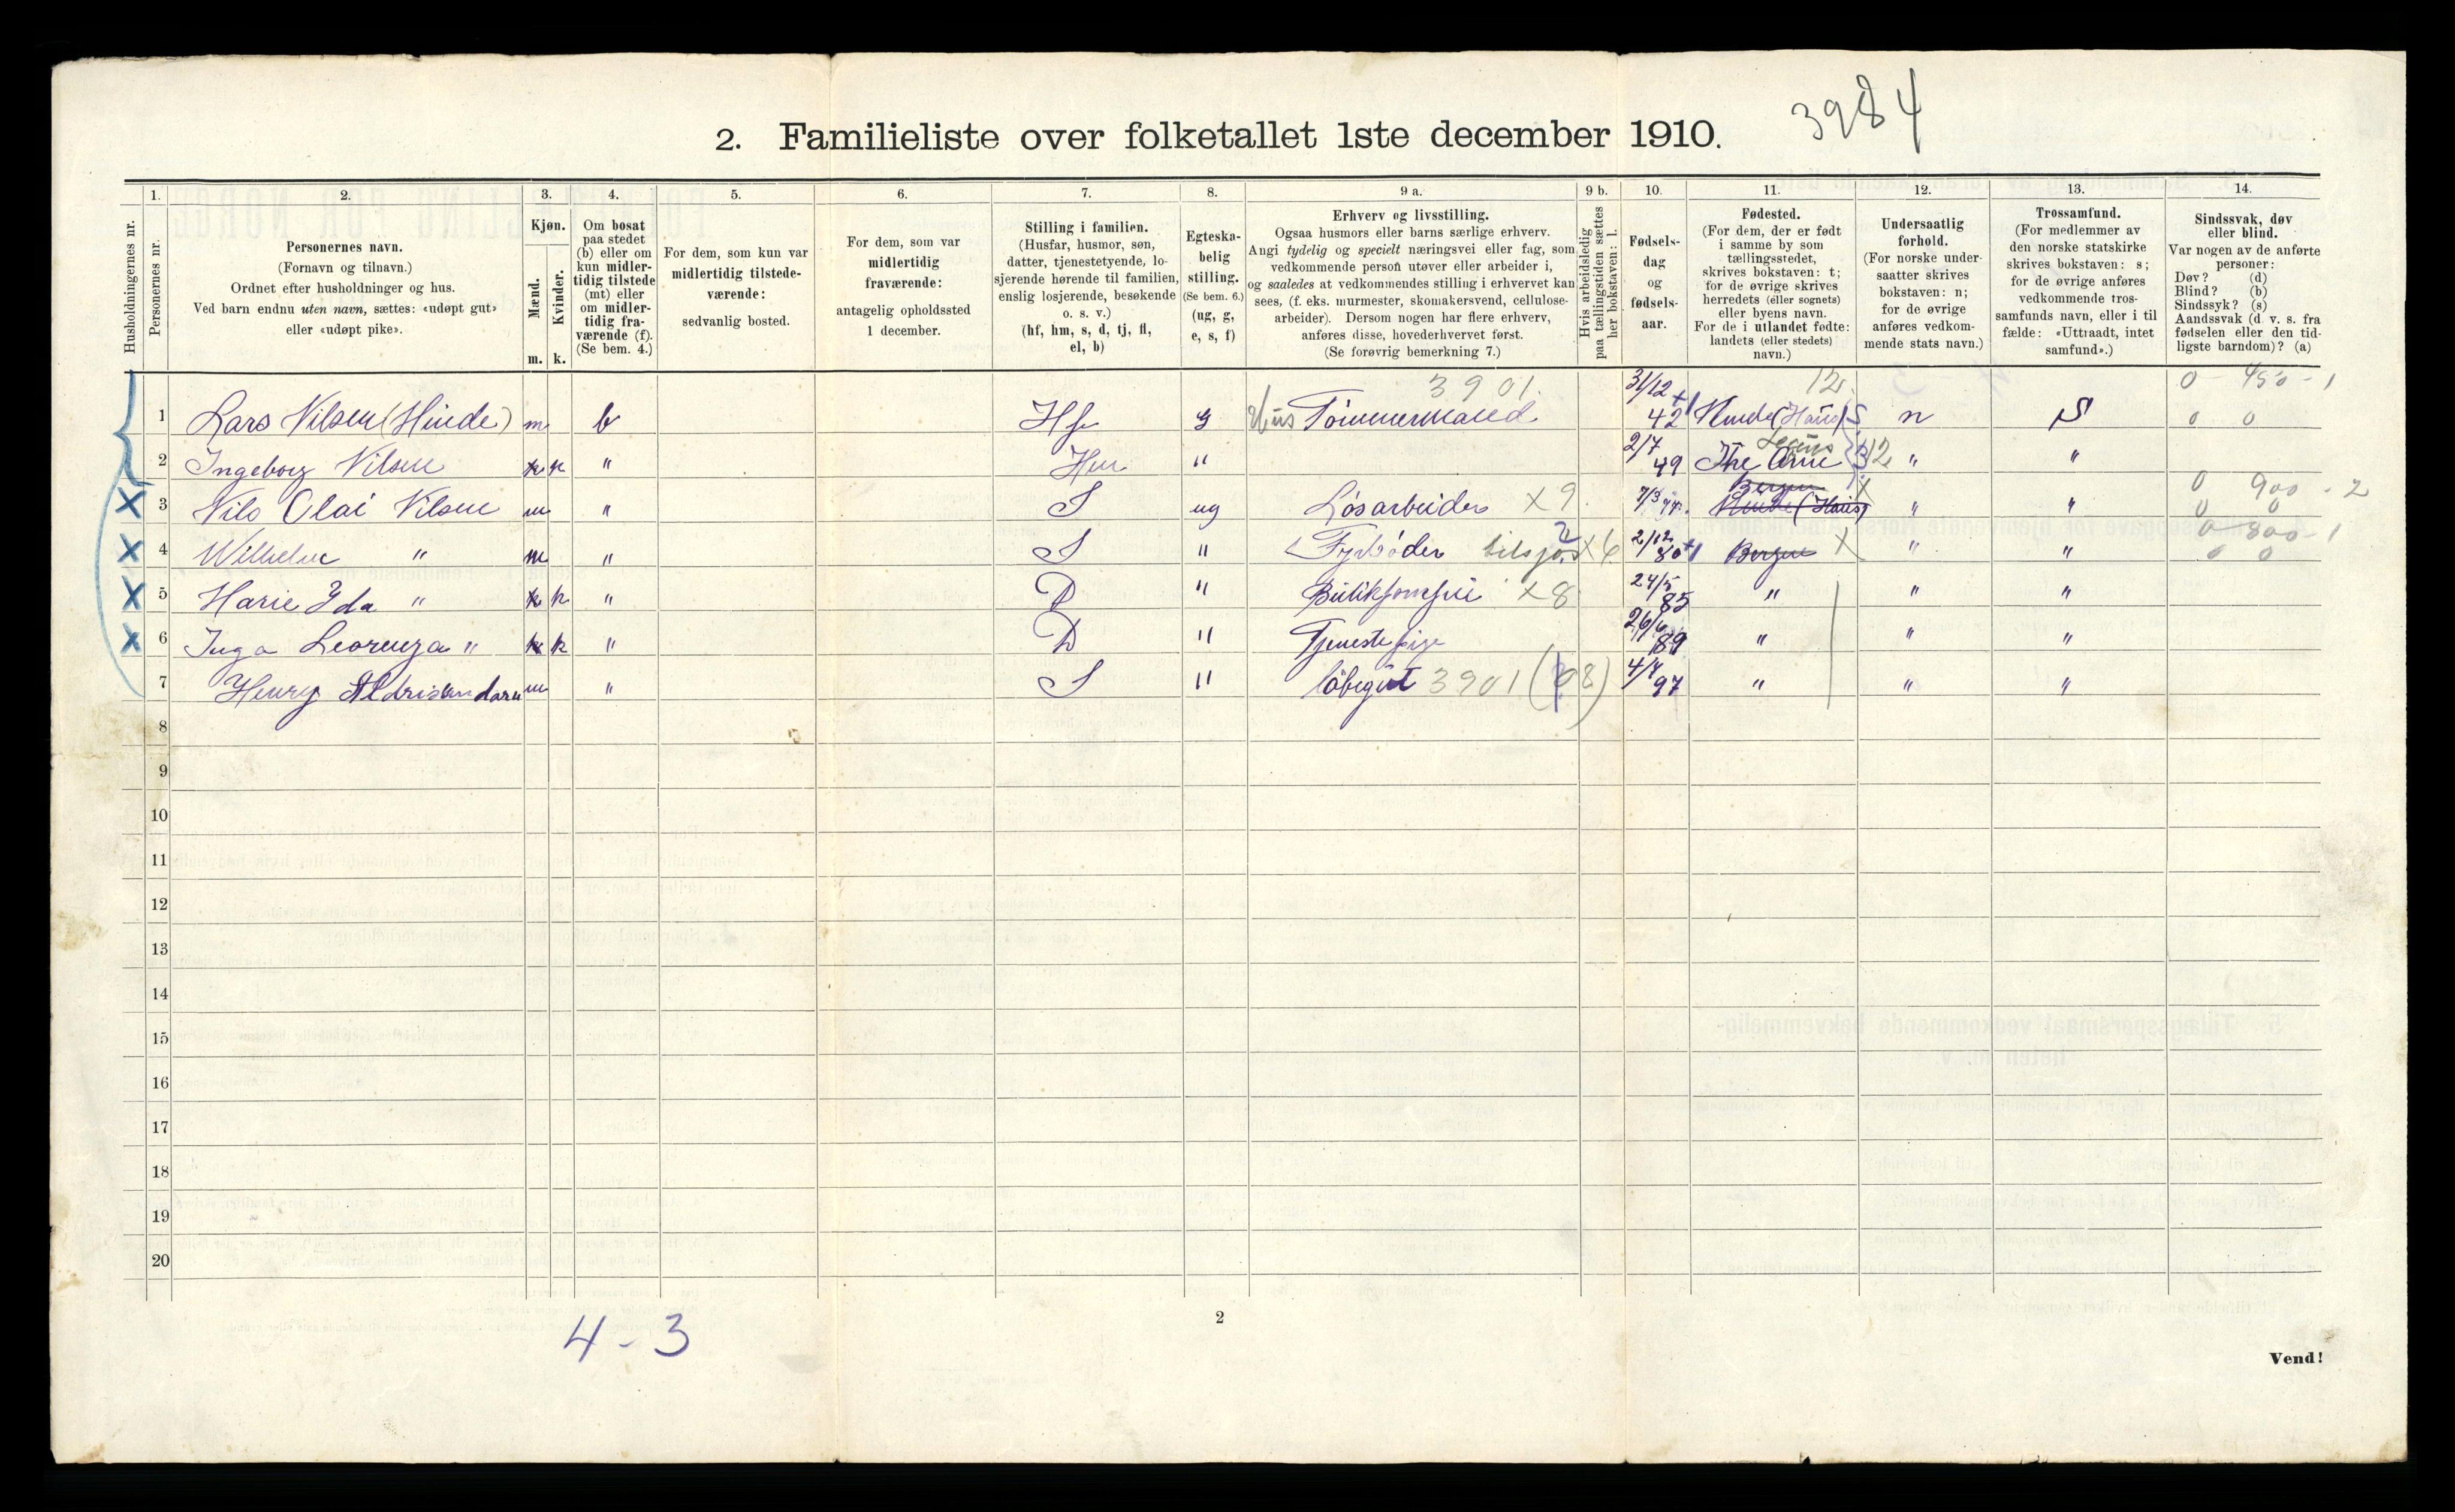 3984
2. Familieliste over folketallet 1ste december 1910.
Husholdningernes nr.
1. Personernes nr.
2. Personernes navn.
(Fornavn og tilnavn.)
Ordnet efter husholdninger og hus.
Ved barn endnu uten navn, sættes: «udøpt gut»
eller «udøpt pike».
3. Kjøn.
Mænd. m.
Kvinder. k.
4. Om bosat
paa stedet
(b) eller om
kun midler-
tidig tilstede
(mt) eller
om midler-
tidig fra-
værende (f).
(Se bem. 4.)
5. For dem, som kun var
midlertidig tilstede-
værende:
sedvanlig bosted.
6. For dem, som var
midlertidig
fraværende:
antagelig opholdssted
1 december.
7. Stilling i familien.
(Husfar, husmor, søn,
datter, tjenestetyende, lo-
sjerende hørende til familien,
enslig losjerende, besøkende
o. s. v.)
(hf, hm, s, d, tj, fl,
el, b)
8. Egteska-
belig
stilling.
(Se bem. 6.)
(ug, g,
e, s, f)
9 a. Erhverv og livsstilling.
Ogsaa husmors eller barns særlige erhverv.
Angi tydelig og specielt næringsvei eller fag, som
vedkommende person utøver eller arbeider i,
og saaledes at vedkommendes stilling i erhvervet kan
sees, (f. eks. murmester, skomakersvend, cellulose-
arbeider). Dersom nogen har flere erhverv,
anføres disse, hovederhvervet først.
(Se forøvrig bemerkning 7.)
9 b. Hvis arbeidsledig
paa tællingstiden sættes
her bokstaven: l.
10. Fødsels-
dag
og
fødsels-
aar.
11. Fødested.
(For dem, der er født
i samme by som
tællingsstedet,
skrives bokstaven: t;
for de øvrige skrives
herredets (eller sognets)
eller byens navn.
For de i utlandet fødte:
landets (eller stedets)
navn.)
12. Undersaatlig
forhold.
(For norske under-
saatter skrives
bokstaven: n;
for de øvrige
anføres vedkom-
mende stats navn.)
13. Trossamfund.
(For medlemmer av
den norske statskirke
skrives bokstaven: s;
for de øvrige anføres
vedkommende tros-
samfunds navn, eller i til
fælde: «Uttraadt, intet
samfund».)
14. Sindssvak, døv
eller blind.
Var nogen av de anførte
personer:
Døv? (d)
Blind? (b)
Sindssyk? (s)
Aandssvak (d. v. s. fra
fødselen eller den tid-
ligste barndom)? (a)
3901. 12. 0 - 450 - 1
1 Lars Nilsen (Hinde) m b Hf g Hus Tømmermand 31/12 42 Hinde (Haus) S. n S 0 0
2 Ingeborg Nilsen k " Hm " 2/7 49 12 " "
Bergen 0 900 - 2
3 Nils Olai Nilsen m " S ug Løsarbeider X 9 7/3 Hinde (Haus) " " 0 0
0 800 - 1
4 Wilhelm " m " S " Fyrbøder tilsjøs X 6 2/12 80 Bergen X " " 0 0
5 Marie Ida " k " D " Butikjomfru X 8 24/5 85 " " "
6 Inga " k " D " Tjenestepige 26/6 89 " " "
7 Henry m " S " løbegut 3901 (98) 4/4 97 " " "
8
9
10
11
12
13
14
15
16
17
18
19
20
2
4 - 3
Vend!